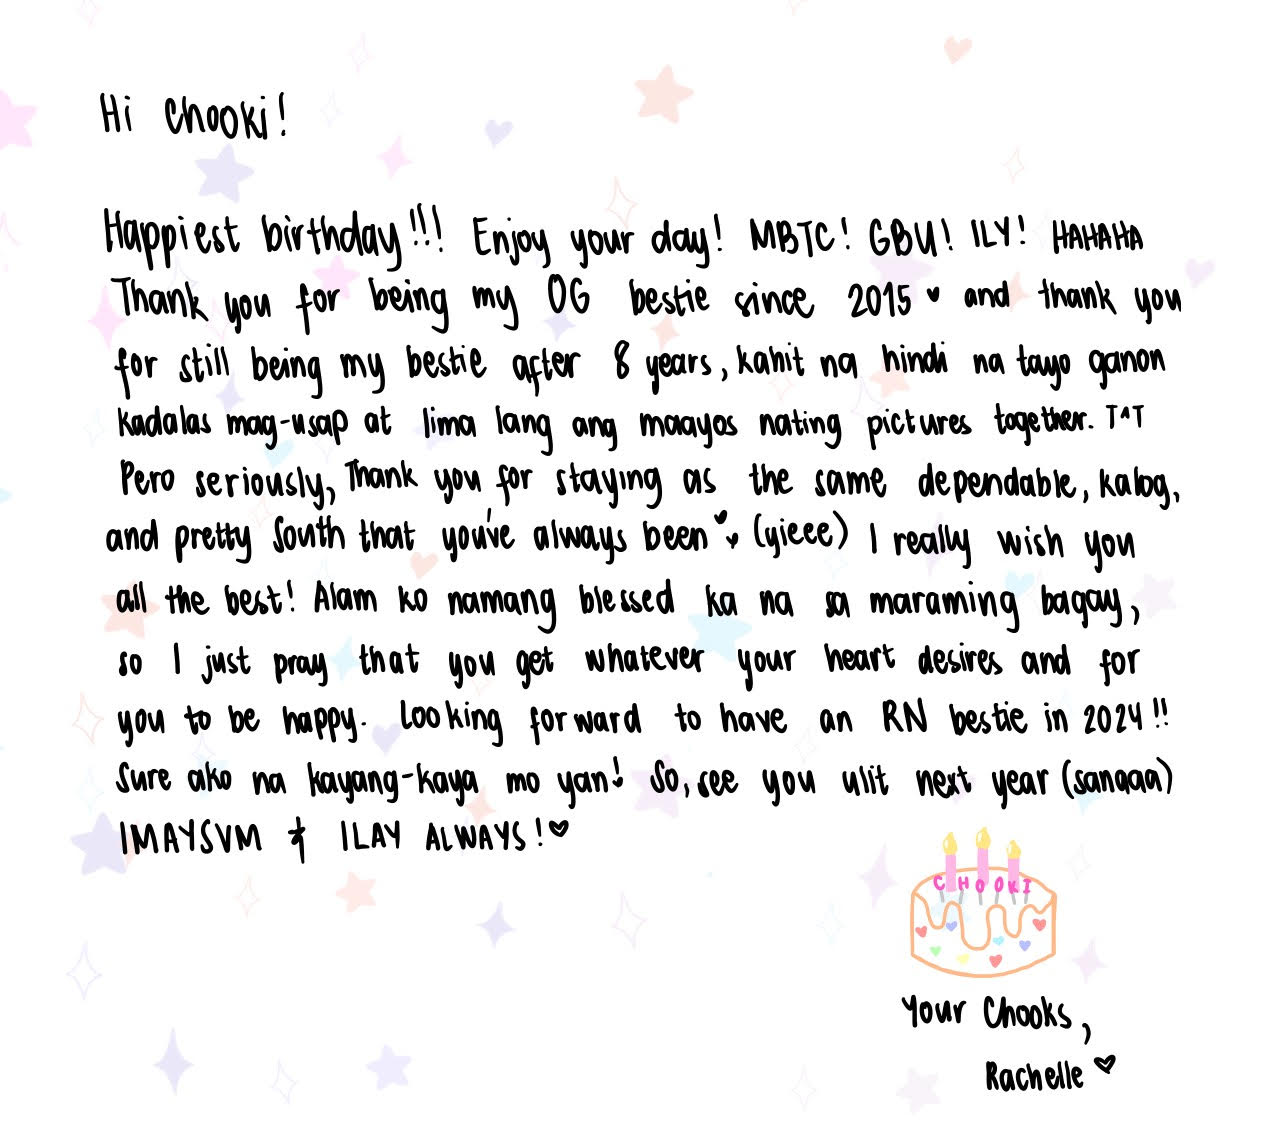 Hi Chooki!
Happiest birthday!!! Enjoy your day! MBTC! GBU! ILY! HAHAHA
Thank you for being my OG bestie since 2015 ♥ and thank you
for still being my bestie after 8 years, kahit na hindi na tayo ganon
kadalas mag-usap at lima lang ang maayos nating pictures together. T^T
Pero seriously, Thank you for staying as the same dependable, kalog,
and pretty South that you've always been ♥♥ (yieee) I really wish you
all the best! Alam ko namang blessed ka na sa maraming bagay,
so I just pray that you get whatever your heart desires and for
you to be happy. Looking forward to have an RN bestie in 2024!!
Sure ako na kayang-kaya mo yan! So, see you ulit next year (sanaaa)
IMAYSVM & ILAY ALWAYS! ♡
CHOOKI
Your Chooks,
Rachelle ♡